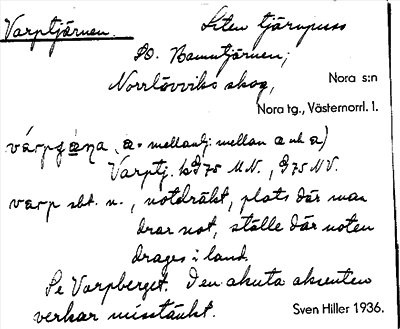 Varptjärnen. Liten tjärnpuss
SO. Bamntjärnen;
Norrlövviks skog, Nora s:n
Nora tg., Västernorrl. 1.
(a = mellanlj. mellan a och a)
Varptj. M.N., NV.
varp sbt. n., notdräkt, plats där man
drar not, ställe där noten
drages i land.
Se Varpberget. Den akuta aksenten
verkar misstänkt. Sven Hiller 1936.